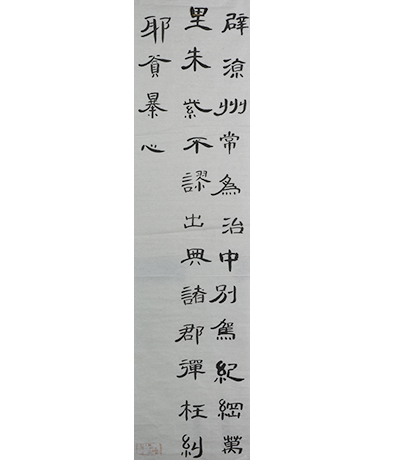 辟涼州常為治中別駕紀綱萬
里朱紫不謬出典諸郡彈枉糾
耶貪暴心